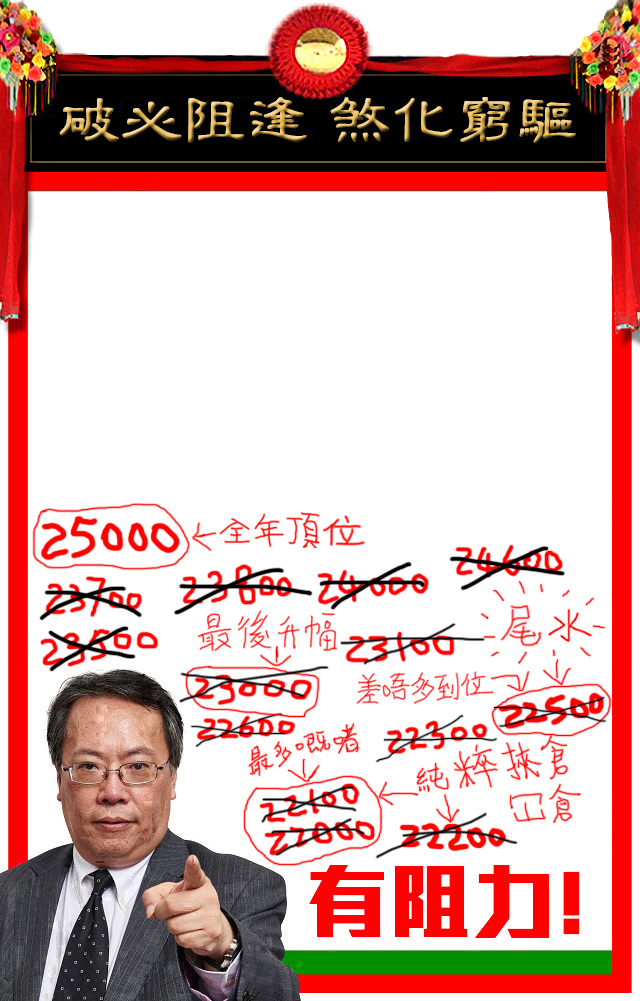 驅窮化煞 逢阻必破
25000
←全年頂位
23700
23800
24000
24600
23500
最後升幅
23100
尾水
23000
差唔多到位
22500
22600
22300
最多嘅啫
純粹挾倉
冚倉
22100
22000
22200
有阻力!